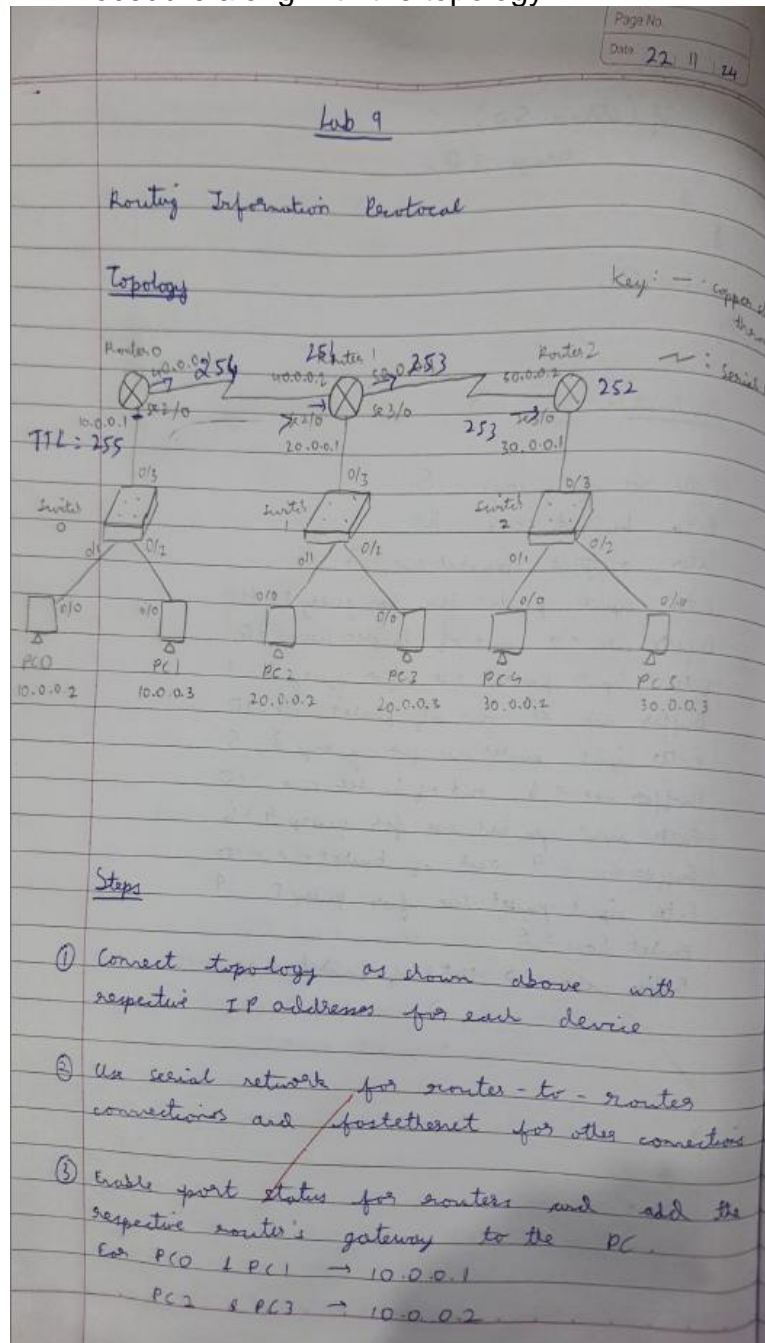 Page No.
Date 22 11 24
Lab 9
Routing Information Protocal
Topology
Key: — : copper
~ : Serial
Router 0
Router 1
Router 2
40.0.0.1 254
254
40.0.0.2
253
50.0.0.2
252
se2/0
se2/0
se3/0
253
se3/0
10.0.0.1
TTL: 255
20.0.0.1
30.0.0.1
0/3
0/3
0/3
Switch 0
Switch 1
Switch 2
0/1 0/2
0/1 0/2
0/1 0/2
0/0 0/0 0/0 0/0 0/0 0/0
PC0 PC1 PC2 PC3 PC4 PC5
10.0.0.2 10.0.0.3 20.0.0.2 20.0.0.3 30.0.0.2 30.0.0.3
Steps
① Connect topology as shown above with
respective IP addresses for each device
② Use serial network for router-to-router
connections and fastethernet for other connections
③ Enable port status for routers and add the
respective router's gateway to the PC.
For PC0 & PC1 → 10.0.0.1
PC2 & PC3 → 10.0.0.2